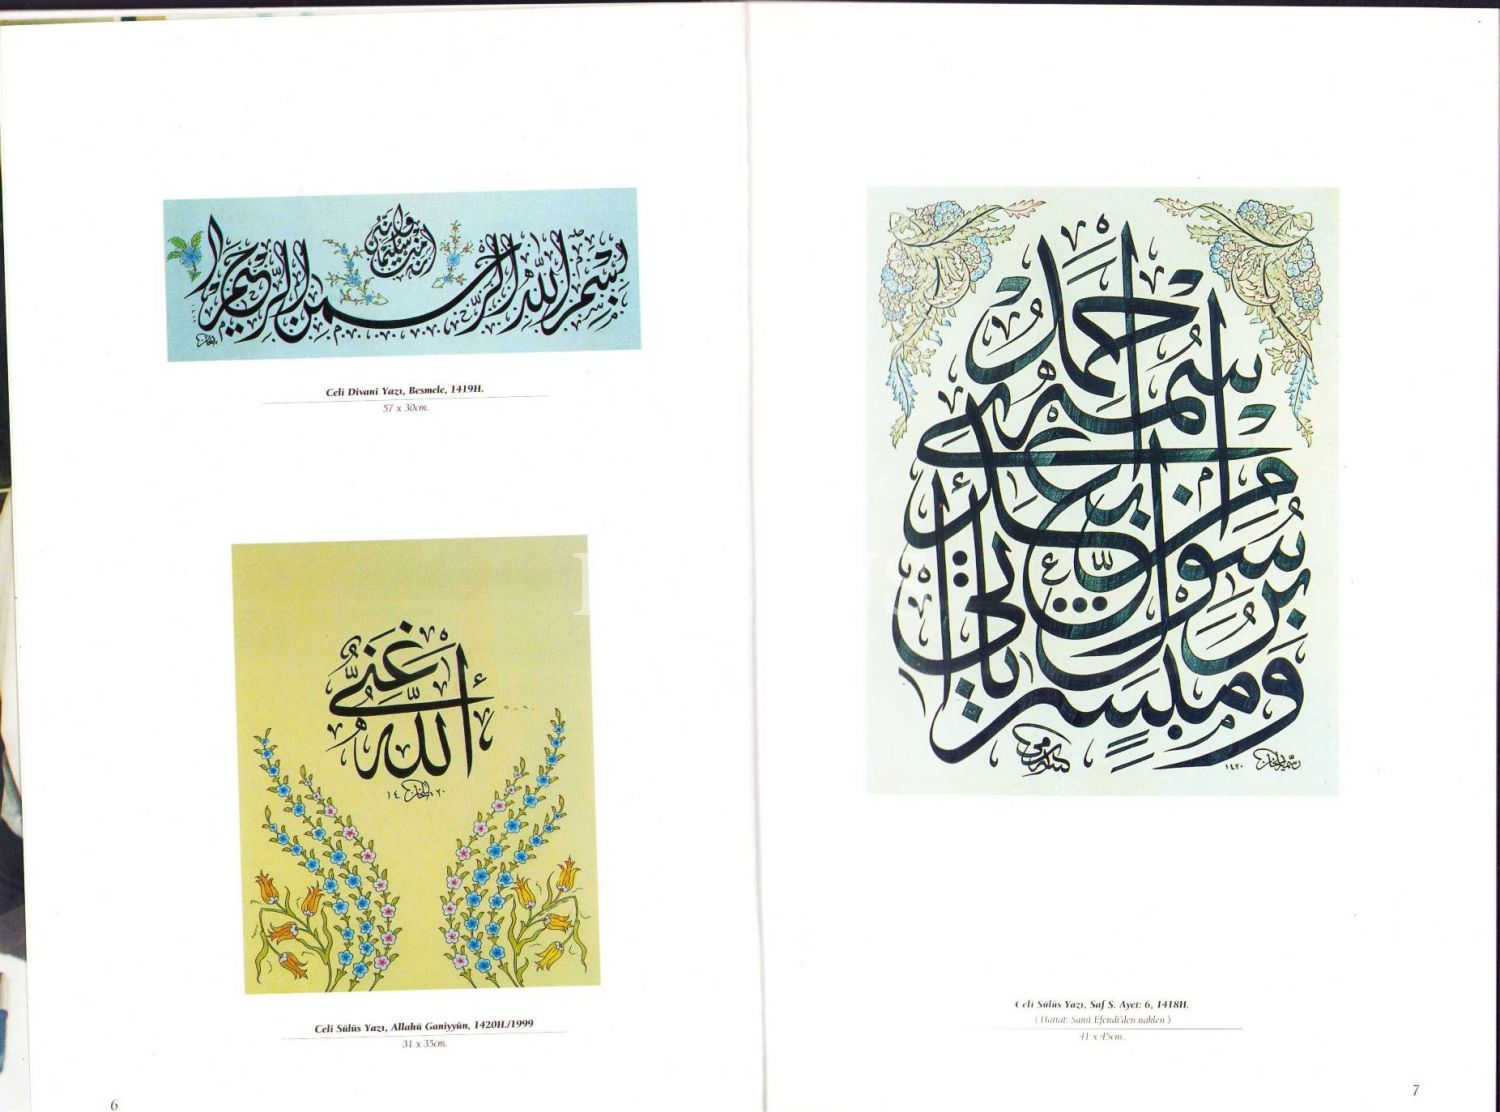 إنه من سليمان وإنه
بسم الله الرحمن الرحيم
Celi Divani Yazı, Besmele, 1419H.
57 x 30cm.
الله غني
١٤٢٠
Celi Sülüs Yazı, Allahü Ganiyyün, 1420H./1999
31 x 35cm.
6
ومبشرا برسول يأتي من بعدي اسمه أحمد
١٤٢٠
Celi Sülüs Yazı, Saf S. Ayet: 6, 1418H.
( Hattat: Sami Efendi'den naklen )
41 x 45cm.
7